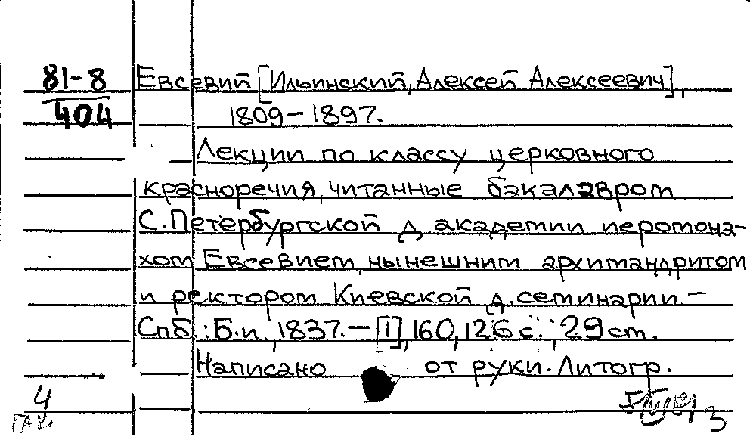 81-8 Евсевий [Ильинский, Алексей Алексеевич],
404 1809-1897.
Лекции по классу церковного
красноречия, читанные бакалавром
С.Петербургской д. академии иеромона-
хом Евсевием, нынешним архимандритом
и ректором Киевской д. семинарии. -
Спб.: Б.и., 1837. - [1], 160, 126 с.; 29 см.
Написано от руки. Литогр.
4
3